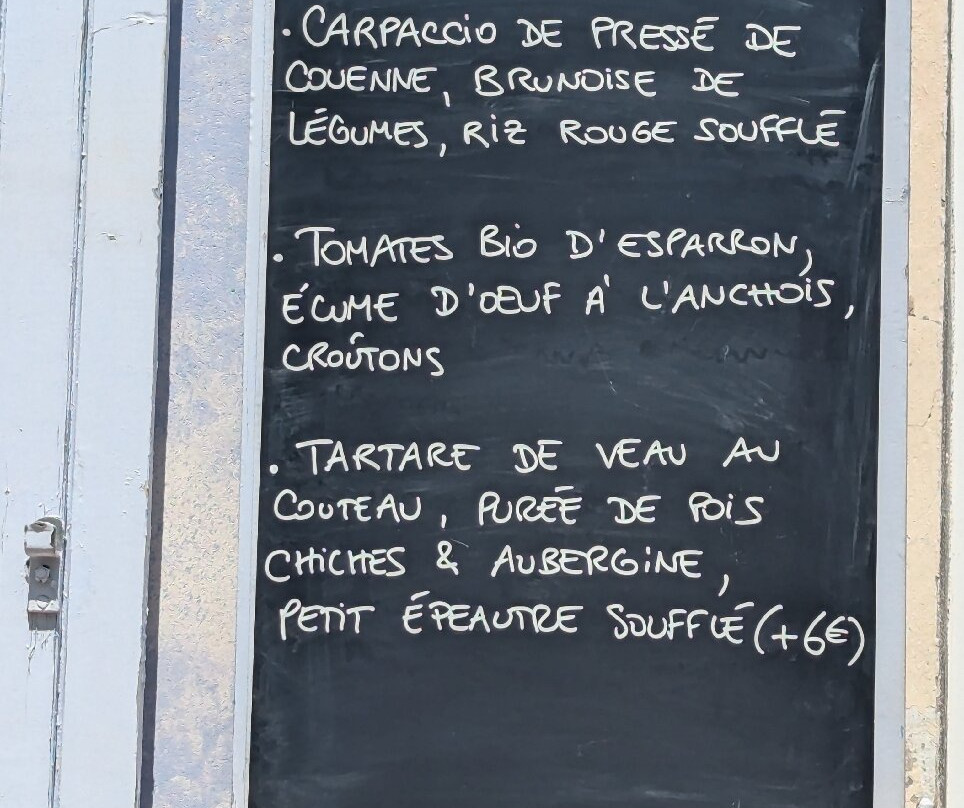 · CARPACCIO DE PRESSÉ DE
COUENNE, BRUNOISE DE
LÉGUMES, RIZ ROUGE SOUFFLÉ
· TOMATES BIO D'ESPARRON,
ÉCUME D'OEUF À L'ANCHOIS,
CROÛTONS
· TARTARE DE VEAU AU
COUTEAU, PURÉE DE POIS
CHICHES & AUBERGINE,
PETIT ÉPEAUTRE SOUFFLÉ (+6€)